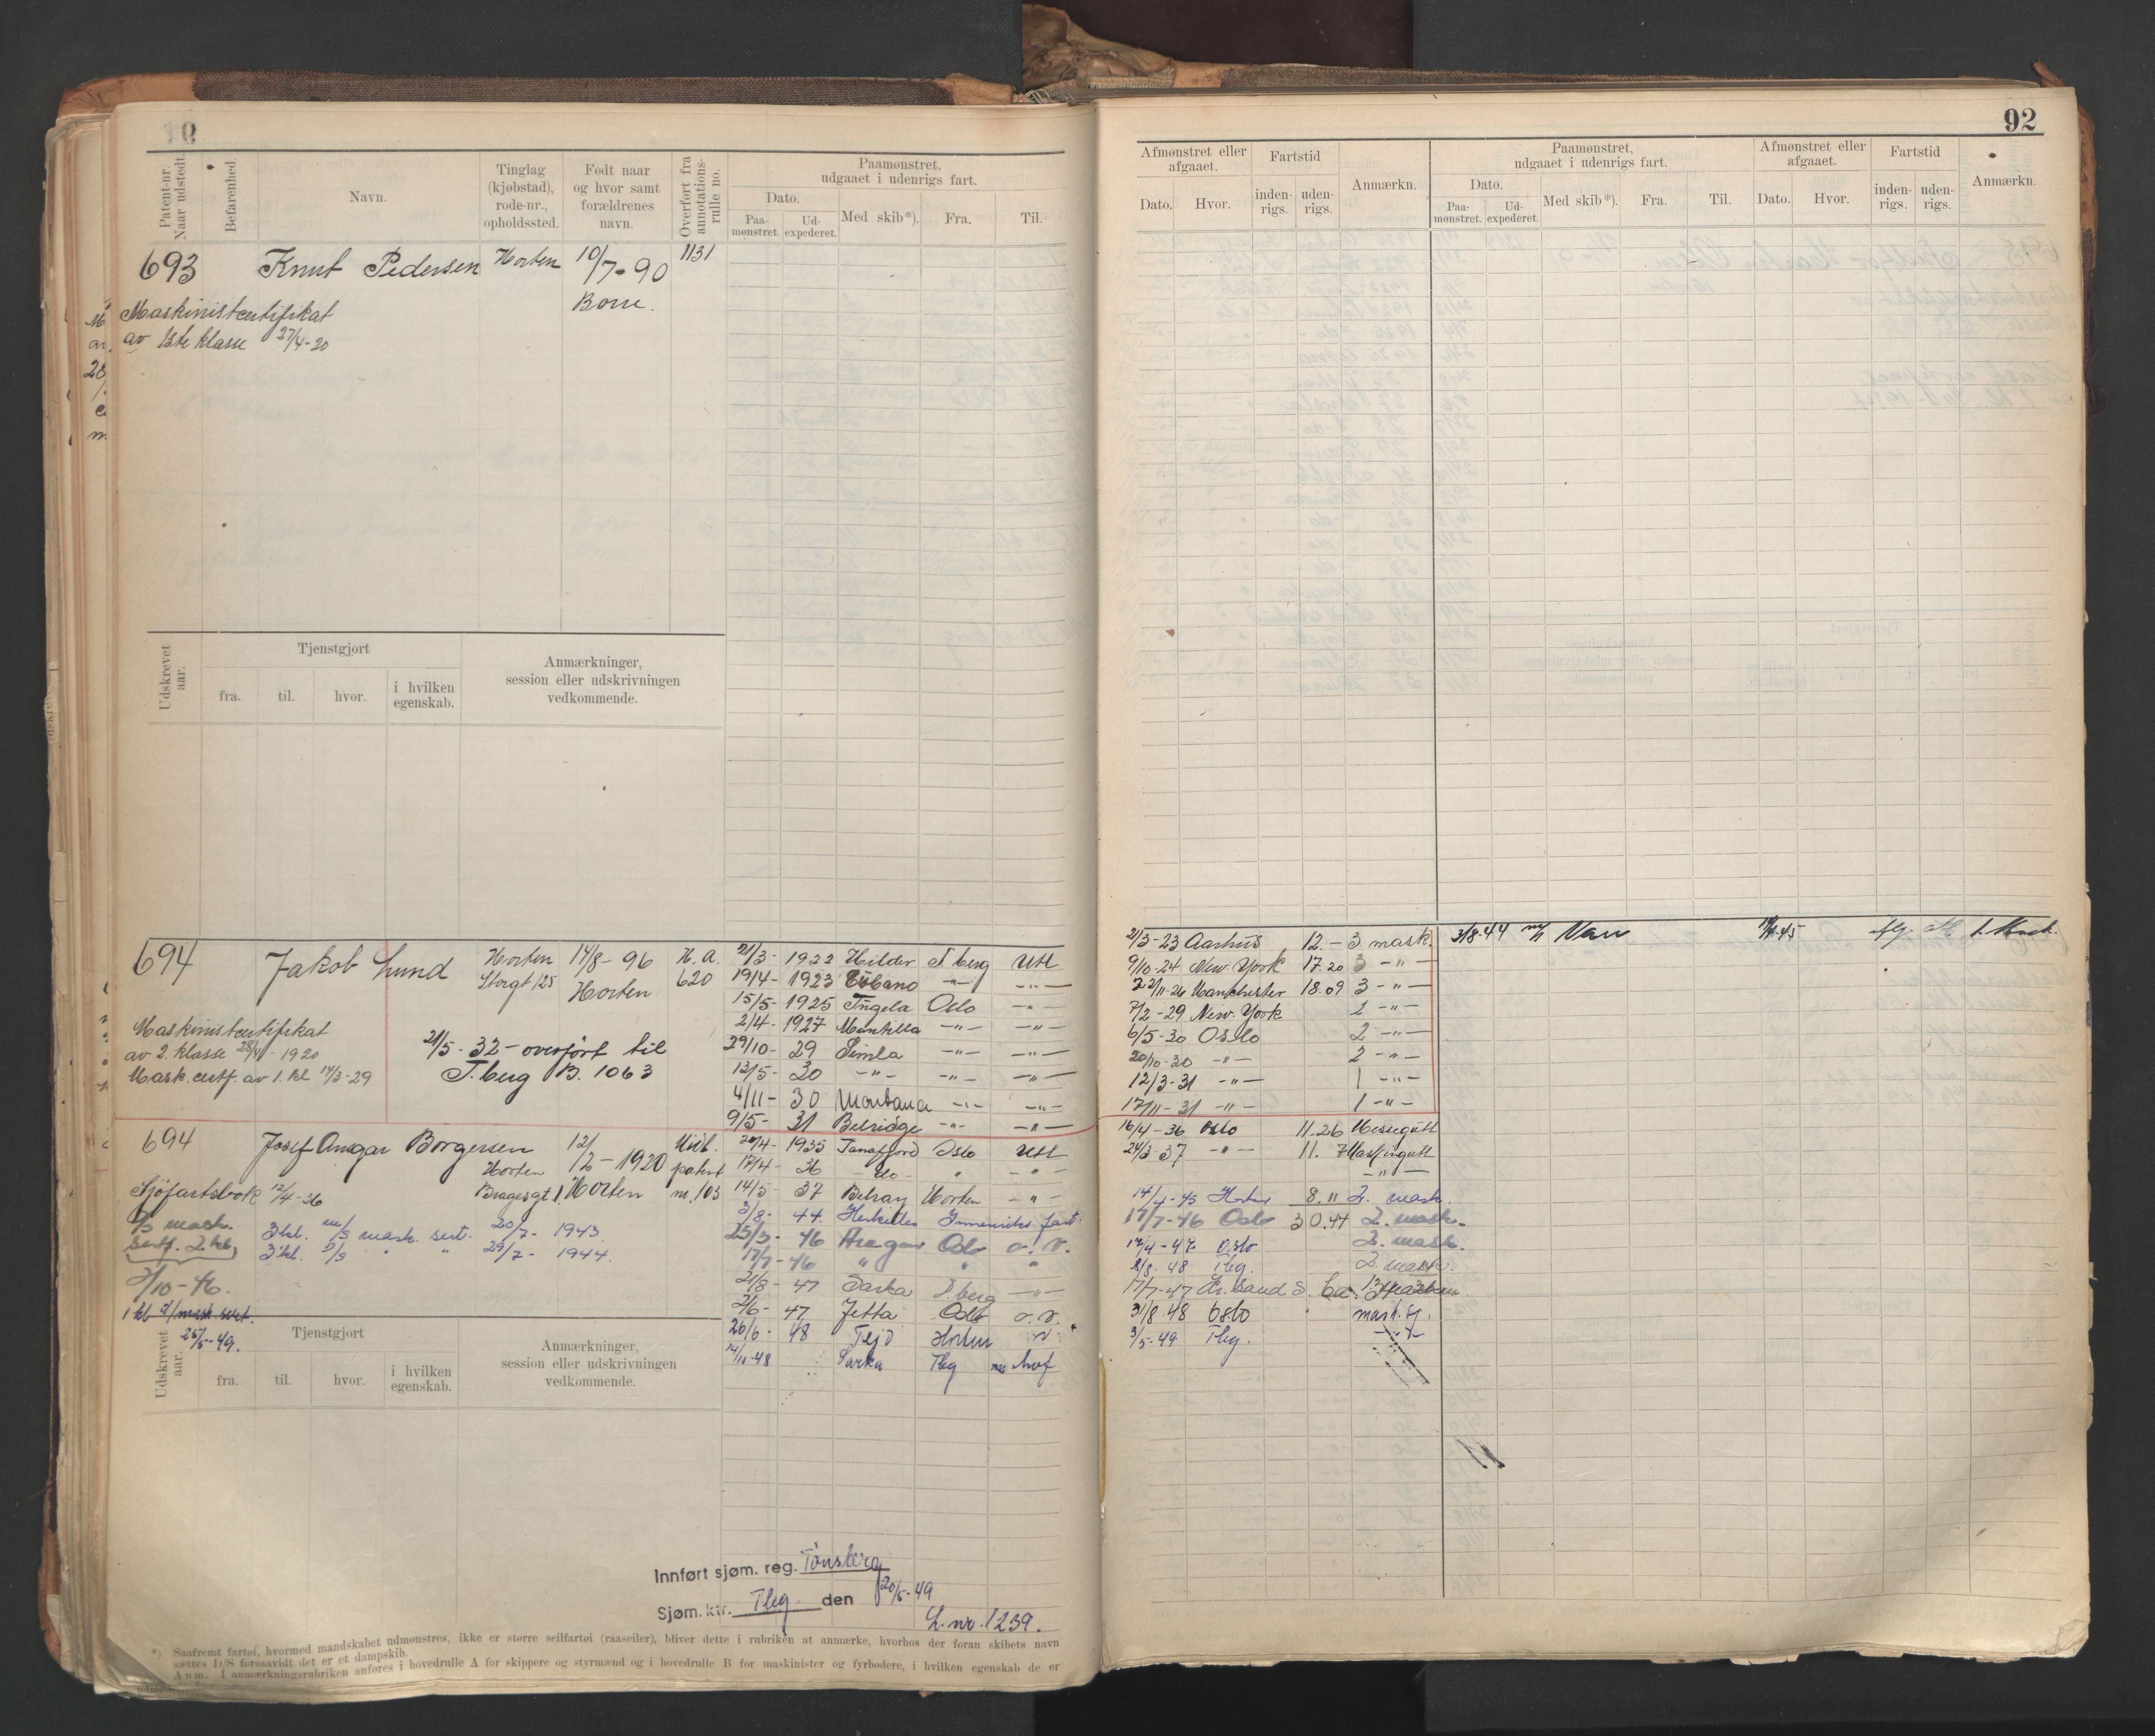 92
Patent-nr. Naar udstedt.
Befarenhed.
Navn.
Tinglag (kjøbstad), rode-nr., opholdssted.
Født naar og hvor samt forældrenes navn.
Overført fra annotations-rulle no.
Paamønstret, udgaaet i udenrigs fart.
Dato.
Paa-mønstret.
Ud-expederet.
Med skib*).
Fra.
Til.
Afmønstret eller afgaaet.
Dato.
Hvor.
Fartstid
inden-rigs.
uden-rigs.
Anmærkn.
Paamønstret, udgaaet i udenrigs fart.
Dato.
Paa-mønstret.
Ud-expederet.
Med skib*).
Fra.
Til.
Afmønstret eller afgaaet.
Dato.
Hvor.
Fartstid
inden-rigs.
uden-rigs.
Anmærkn.
693 Knut Pedersen Horten 10/7-90 1131
Borre.
Maskinistcertifikat
av 1ste klasse 27/4-20
Udskrevet aar.
Tjenstgjort
fra.
til.
hvor.
i hvilken egenskab.
Anmærkninger, session eller udskrivningen vedkommende.
694 Jakob Lund Horten 14/8-96 H. A.
Storgt 125 Horten 620
Maskinistcertifikat
av 2. klasse 1920
Mask. certf. av 1. kl 14/3-29
21/5-32 - overført til
T.berg B. 1063
21/3- 1922 Hilder T.berg Utl
19/4- 1923 Cubano -"- -"-
15/5- 1925 Tingela Oslo -"-
2/4- 1927 Mantilla -"- -"-
29/10- 29 Simla -"- -"-
12/5- 30 -"- -"- -"-
4/11- 30 Montana -"- -"-
9/5- 31 Belridge -"- -"-
2/3-23 Aarhus 12.- 3. mask.
9/10-24 New. York 17.20 3 -"-
22/11-26 Manchester 18.09 3 -"-
7/2-29 New. York 2 -"-
6/5-30 Oslo 2 -"-
20/10-30 -"- 2 -"-
12/3-31 -"- 1 -"-
17/11-31 -"- 1 -"-
3/8.44
694 Josef Ansgar Borgersen 12/2-1920
Horten
Bragesgt 1. Horten
patent nr. 103
Sjøfartsbok 12/4-36
mask.
sertf. 2 kl.
3 kl. m/s mask. sert. 20/7- 1943.
3 kl. D/S " " 29/7- 1944.
2/10-46.
25/5-49.
20/4- 1935 Tanafjord Oslo Utl
17/4- 36 -do- " -"-
14/5- 37 Belray Horten -"-
3/8- 44. Herkules Innenriks fart.
25/3- 46 Aragon Oslo
17/7-46 " " "
21/8- 47 Sarka T.berg -"-
2/6- 47 Jetta Oslo
26/6- 48 Horten
11-48 Sarka Tbg
16/4-36 Oslo 11.26 Messegutt
24/3-37 -"- 11.
-"-
Horten 8.11 2. mask.
17/7-46 Oslo 30.44 2. mask.
Oslo 2. mask.
48 Tbg. 2. mask.
17/7-47 Kr. sand S.
31/8.48 Oslo
3/5-49 Tbg.
Udskrevet aar.
Tjenstgjort
fra.
til.
hvor.
i hvilken egenskab.
Anmærkninger, session eller udskrivningen vedkommende.
Innført sjøm. reg. Tønsberg
Sjøm. ktr. Tbg den 20/5-49
L.nr. 1239.
*) Saafremt fartøi, hvormed mandskabet udmønstres, ikke er større seilfartøi (raaseiler), bliver dette i rubriken at anmærke, hvorhos der foran skibets navn
sættes D/S forsaavidt det er et dampskib.
Anm. I anmærkningsrubriken anføres i hovedrulle A for skippere og styrmænd og i hovedrulle B for maskinister og fyrbødere, i hvilken egenskab de er